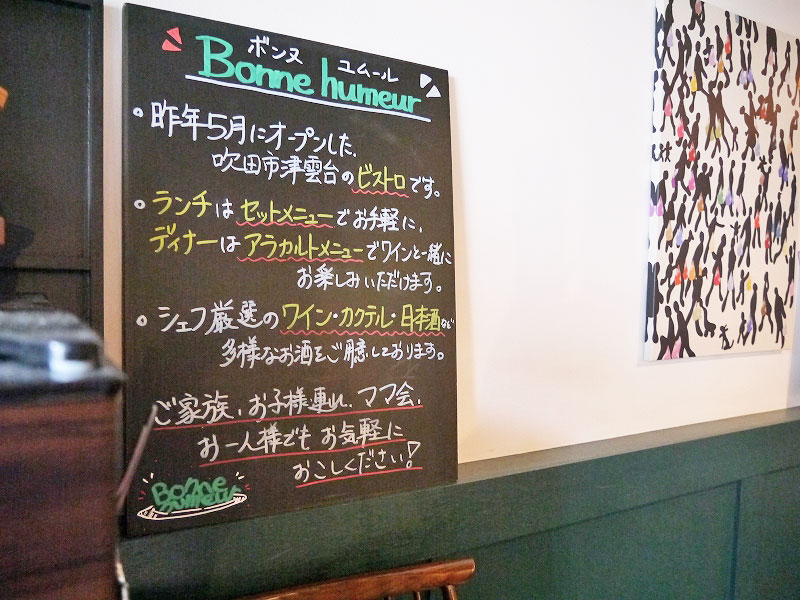 ボンヌ ユムール
Bonne humeur
昨年5月にオープンした、
吹田市津雲台のビストロです。
ランチはセットメニューでお手軽に、
ディナーはアラカルトメニューでワインと一緒に
お楽しみいただけます。
シェフ厳選のワイン・カクテル・日本酒など
多様なお酒をご用意しております。
ご家族、お子様連れ、ママ会、
お一人様でもお気軽に
おこしください!
Bonne
humeur